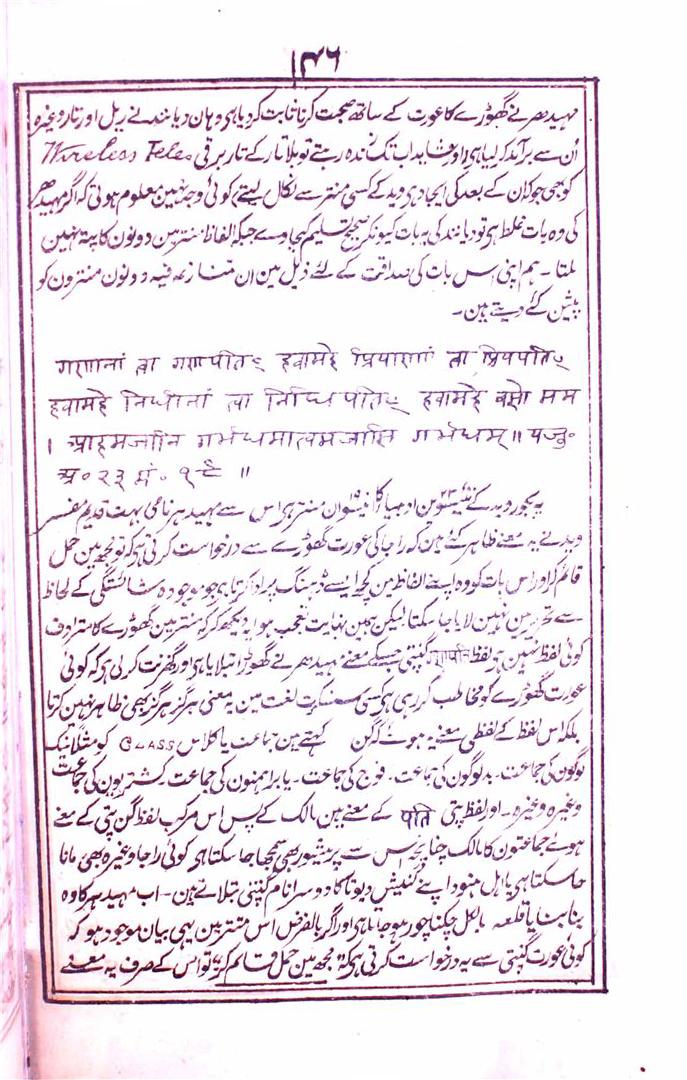 ۱۴۶
مہیدھر نے گھوڑے کا عورت کے ساتھ صحبت کرنا ثابت کر دیا ہی وہان دیانند نے ریل اور تار وغیرہ
اُن سے برآمد کر لیا ہی اور شاید اب تک زندہ رہتے تو بلا تار کے تار برقی Wireless Teleg
کو بھی جو کہ اُن کے بعد کی ایجاد ہی وید کے کسی منتر سے نکال لیتے) کوئی وجہ نہین معلوم ہوتی کہ اگر مہیدھر
کی وہ بات غلط ہی تو دیانند کی یہ بات کیونکر صحیح تسلیم کیجاوے جبکہ الفاظ منتر مین دونون کا پتہ نہین
ملتا ۔ ہم اپنی اس بات کی صداقت کے لئے ذیل مین ان متنازعہ فیہ دونون منترون کو
پیش کئے دیتے ہین ۔
गणानां त्वा गणपतिं हवामहे प्रियाणां त्वा प्रियपतिं
हवामहे निधीनां त्वा निधिपतिं हवामहे वसो मम
। आहमजानि गर्भधमात्वमजासि गर्भधम् ॥ यजु॰
अ॰ २३ मं॰ १९ ॥
یہ یجور وید کے تئیسوین ۲۳ ادھیا کا اُنیسوان ۱۹ منتر ہی اس سے مہیدھر نامی بہت قدیم مفسر
وید نے یہ معنے ظاہر کئے ہین کہ راجا کی عورت گھوڑے سے درخواست کرتی ہی کہ تو مجھ مین حمل
قائم کر اور اس بات کو وہ اپنے الفاظ مین کچھ ایسے ڈھنگ پر ادا کرتا ہی جو موجودہ شائستگی کے لحاظ
سے تحریر مین نہین لایا جا سکتا لیکن ہمین نہایت تعجب ہوا یہ دیکھ کر کہ منتر مین گھوڑے کا مترادف
کوئی لفظ نہین ہی لفظ गणपति گنپتی جسکے معنے مہیدھر نے گھوڑا بتلایا ہی اور گھڑنت کر لی ہی کہ کوئی
عورت گھوڑے کو مخاطب کر رہی ہی کسی سنسکرت لغت مین یہ معنی ہرگز ہرگز بھی ظاہر نہین کرتا
بلکہ اس لفظ کے لفظی معنے یہ ہوئے گن کہتے ہین جماعت یا کلاس CLASS کو مثلاً نیک
لوگون کی جماعت ۔ بد لوگون کی جماعت ۔ فوج کی جماعت ۔ یا براہمنون کی جماعت ۔ کشتریون کی جماعت
وغیرہ وغیرہ ۔ اور لفظ پتی पति کے معنے ہین مالک کے پس اس مرکب لفظ گن پتی کے معنے
ہوئے جماعتون کا مالک چنانچہ اس سے پرمیشور بھی سمجھا جا سکتا ہی کوئی راجا وغیرہ بھی مانا
جا سکتا ہی یا اہل ہنود اپنے گنیش دیوتا کا دوسرا نام گنپتی بتلاتے ہین ۔ اب مہیدھر کا وہ
بنا بنایا قلعہ بالکل چکنا چور ہو جاتا ہی اور اگر بالفرض اس منتر مین یہی بیان موجود ہو کہ
کوئی عورت گنپتی سے یہ درخواست کرتی ہی کہ تو مجھ مین حمل قائم کر تو اس کے صرف یہ معنے